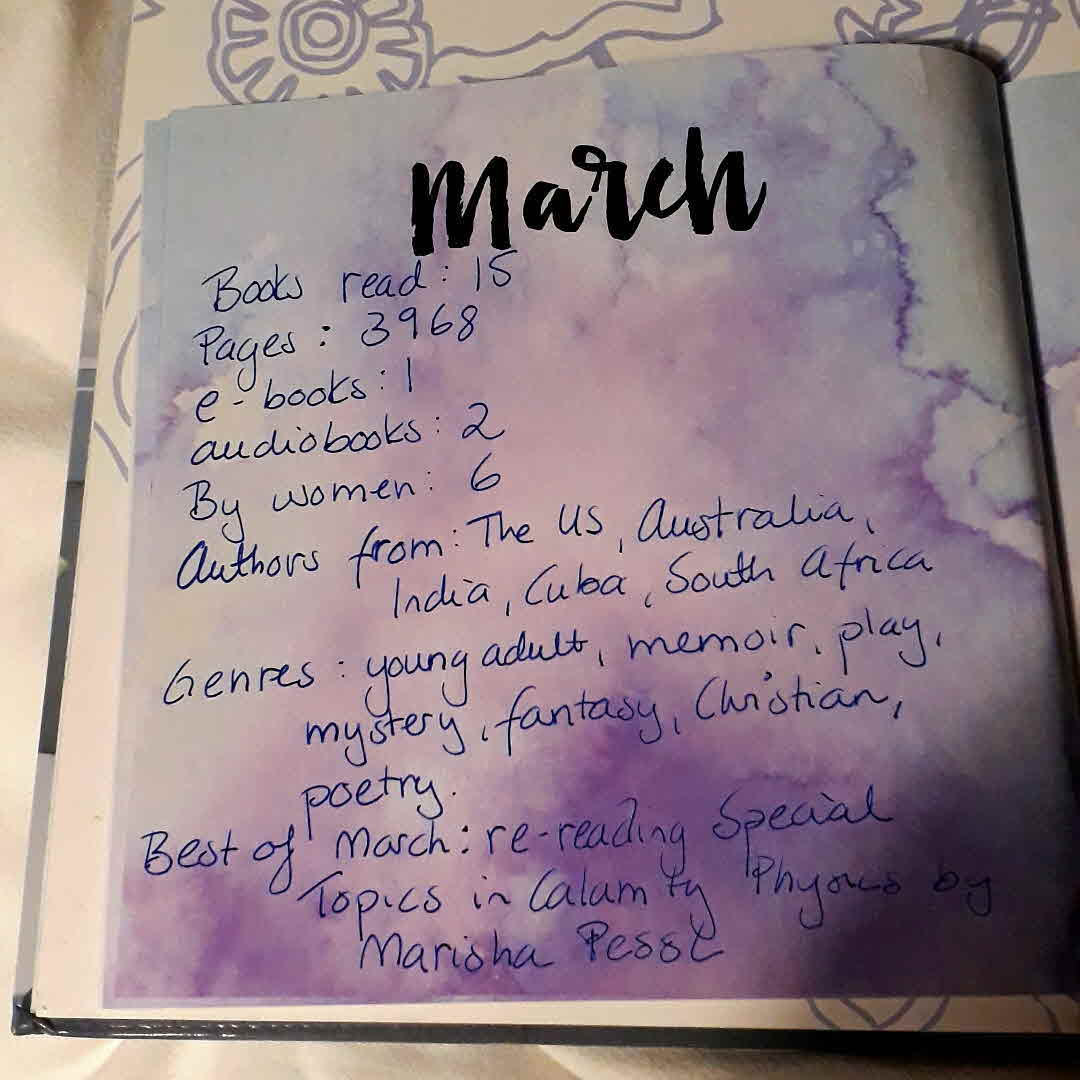 March
Books read: 15
Pages: 3968
e-books: 1
audiobooks: 2
By women: 6
Authors from: The US, Australia,
India, Cuba, South Africa
Genres: young adult, memoir, play,
mystery, fantasy, Christian,
poetry.
Best of March: re-reading Special
Topics in Calamity Physics by
Marisha Pessl